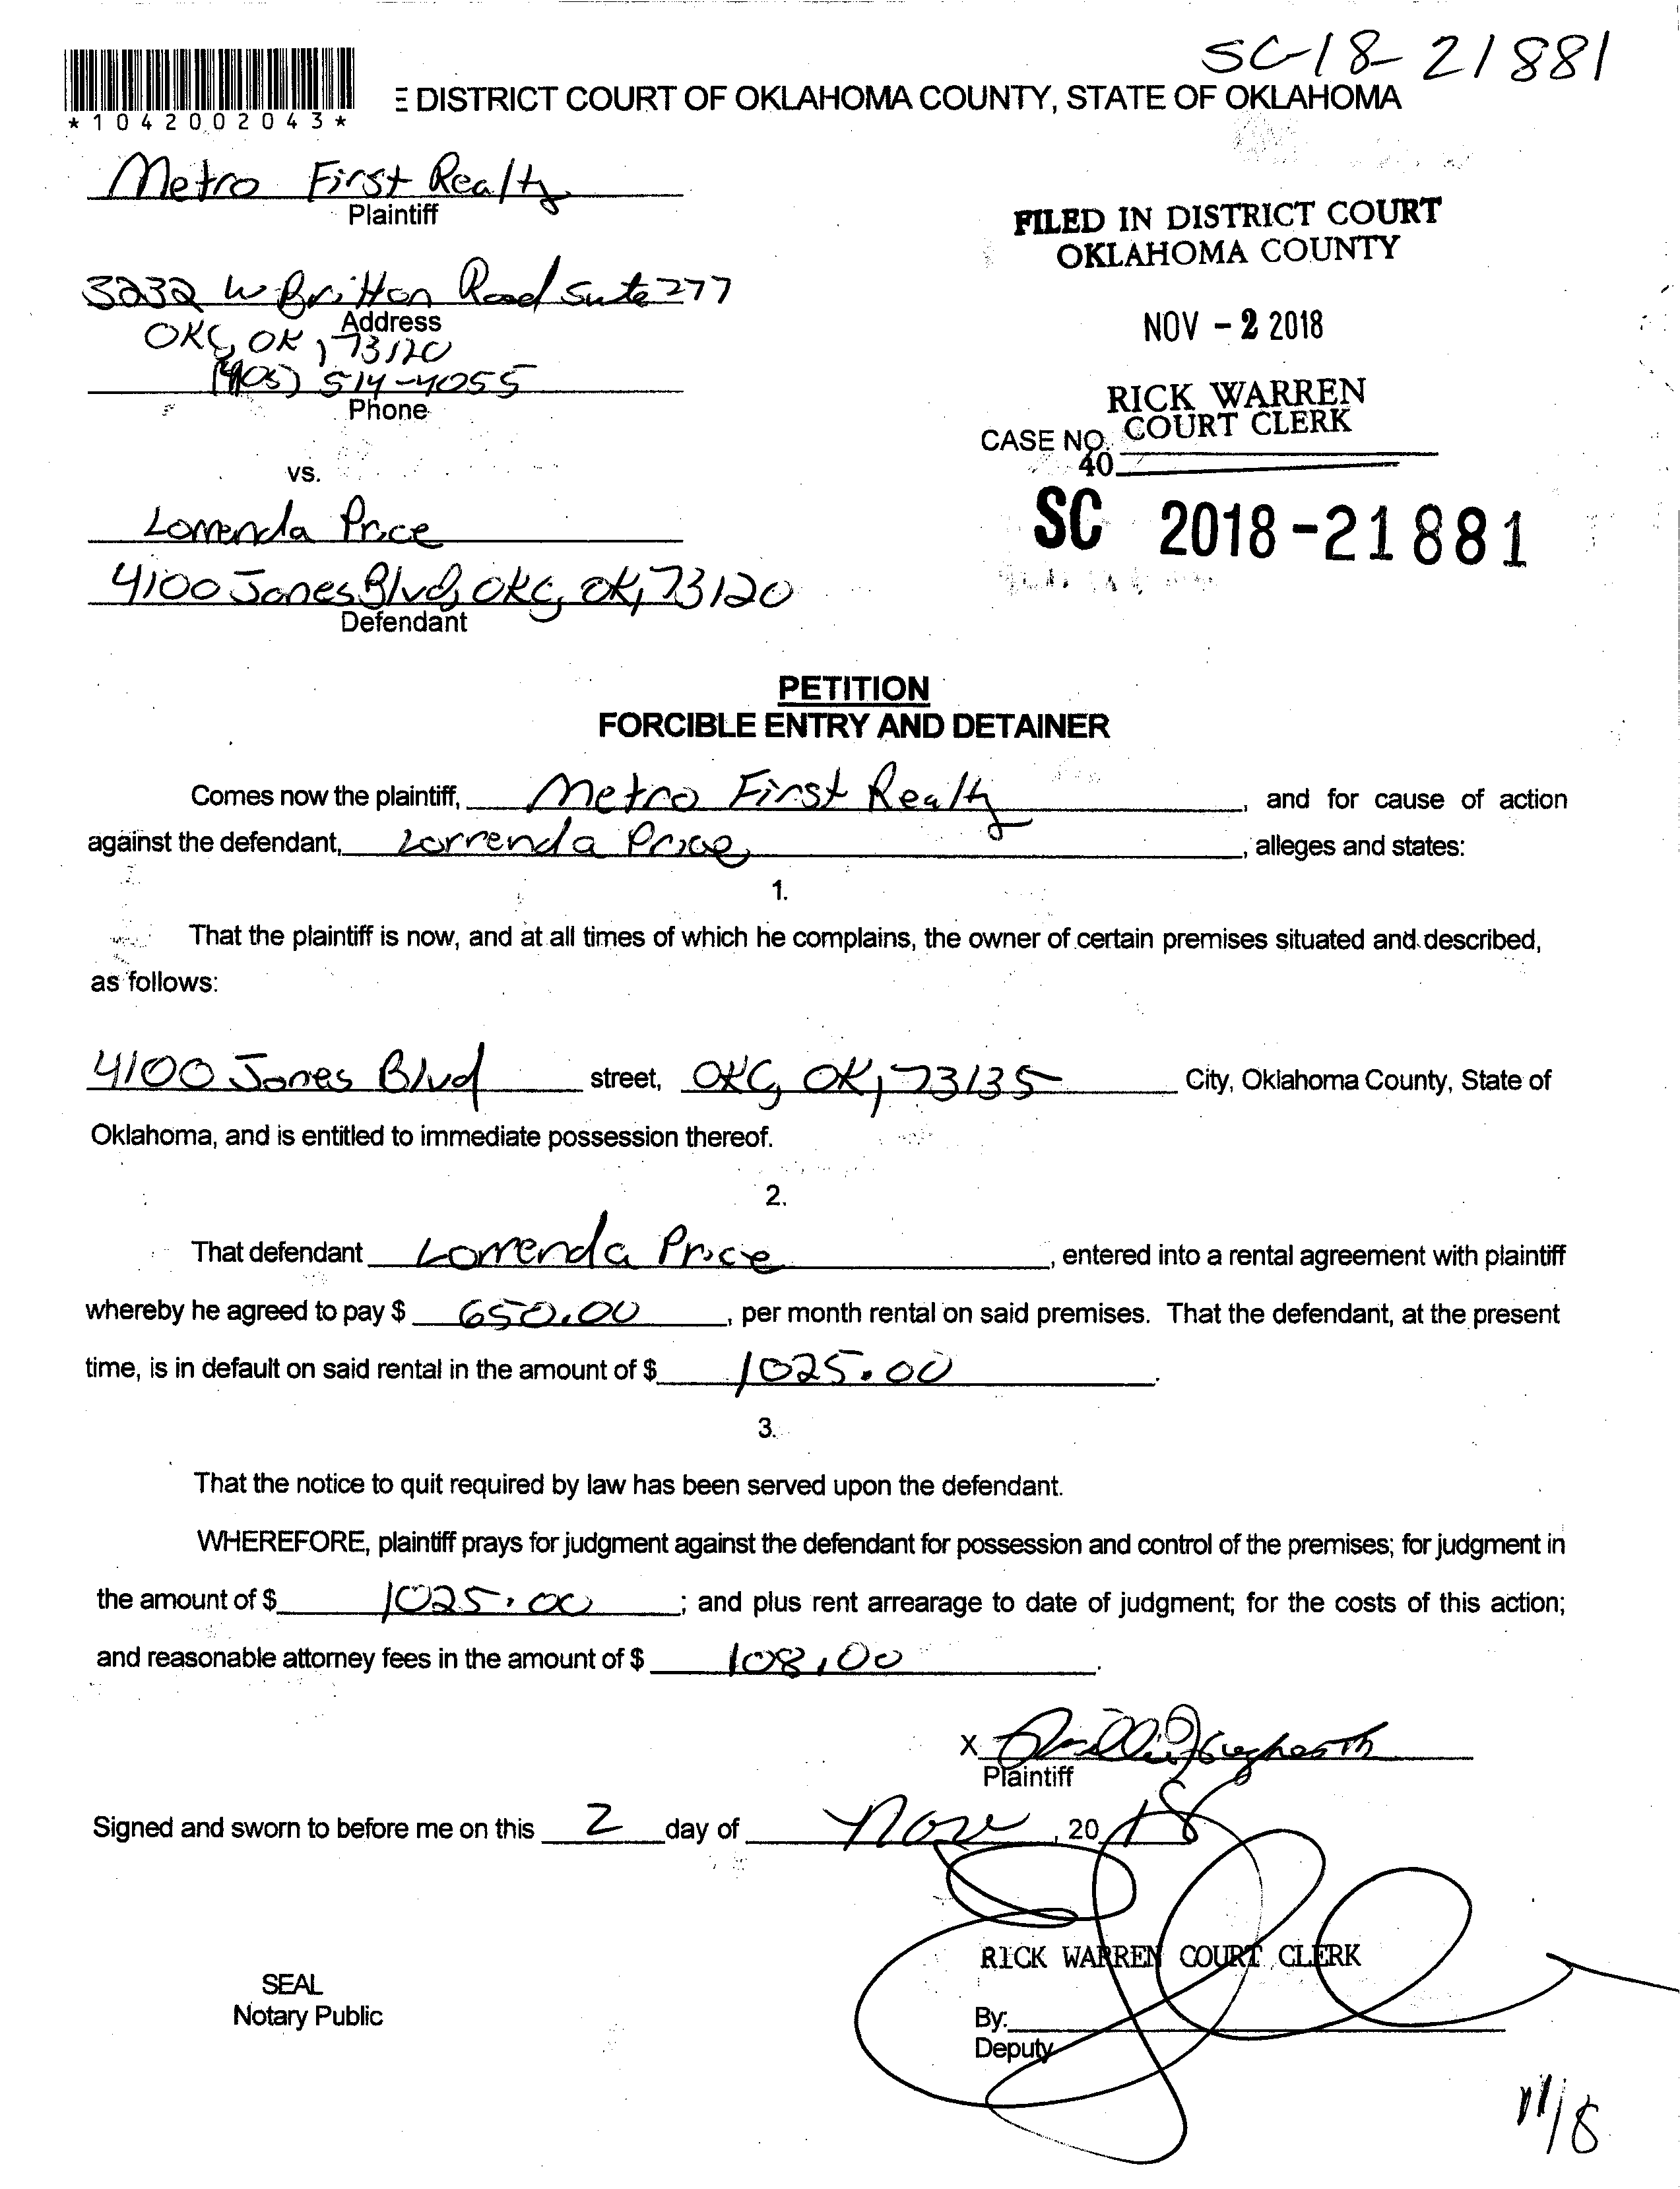 SC-18-21881
*1042002043*
E DISTRICT COURT OF OKLAHOMA COUNTY, STATE OF OKLAHOMA
Metro First Realty
Plaintiff
FILED IN DISTRICT COURT
OKLAHOMA COUNTY
3232 W Britton Road Suite 277
Address
OKC, OK, 73120
NOV - 2 2018
(405) 514-4055
Phone
RICK WARREN
COURT CLERK
CASE NO.
40
vs.
SC 2018-21881
Lorrenda Price
4100 Jones Blvd, OKC, OK, 73120
Defendant
PETITION
FORCIBLE ENTRY AND DETAINER
Comes now the plaintiff, Metro First Realty, and for cause of action
against the defendant, Lorrenda Price, alleges and states:
1.
That the plaintiff is now, and at all times of which he complains, the owner of certain premises situated and described,
as follows:
4100 Jones Blvd street, OKC, OK, 73135 City, Oklahoma County, State of
Oklahoma, and is entitled to immediate possession thereof.
2.
That defendant Lorrenda Price, entered into a rental agreement with plaintiff
whereby he agreed to pay $ 650.00, per month rental on said premises. That the defendant, at the present
time, is in default on said rental in the amount of $ 1025.00.
3.
That the notice to quit required by law has been served upon the defendant.
WHEREFORE, plaintiff prays for judgment against the defendant for possession and control of the premises; for judgment in
the amount of $ 1025.00; and plus rent arrearage to date of judgment; for the costs of this action;
and reasonable attorney fees in the amount of $ 108.00.
X
Plaintiff
Signed and sworn to before me on this 2 day of Nov, 2018
RICK WARREN COURT CLERK
SEAL
Notary Public
By:
Deputy
11/8